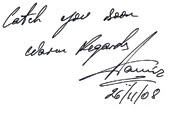 Catch you soon
Warm Regards
26/11/08